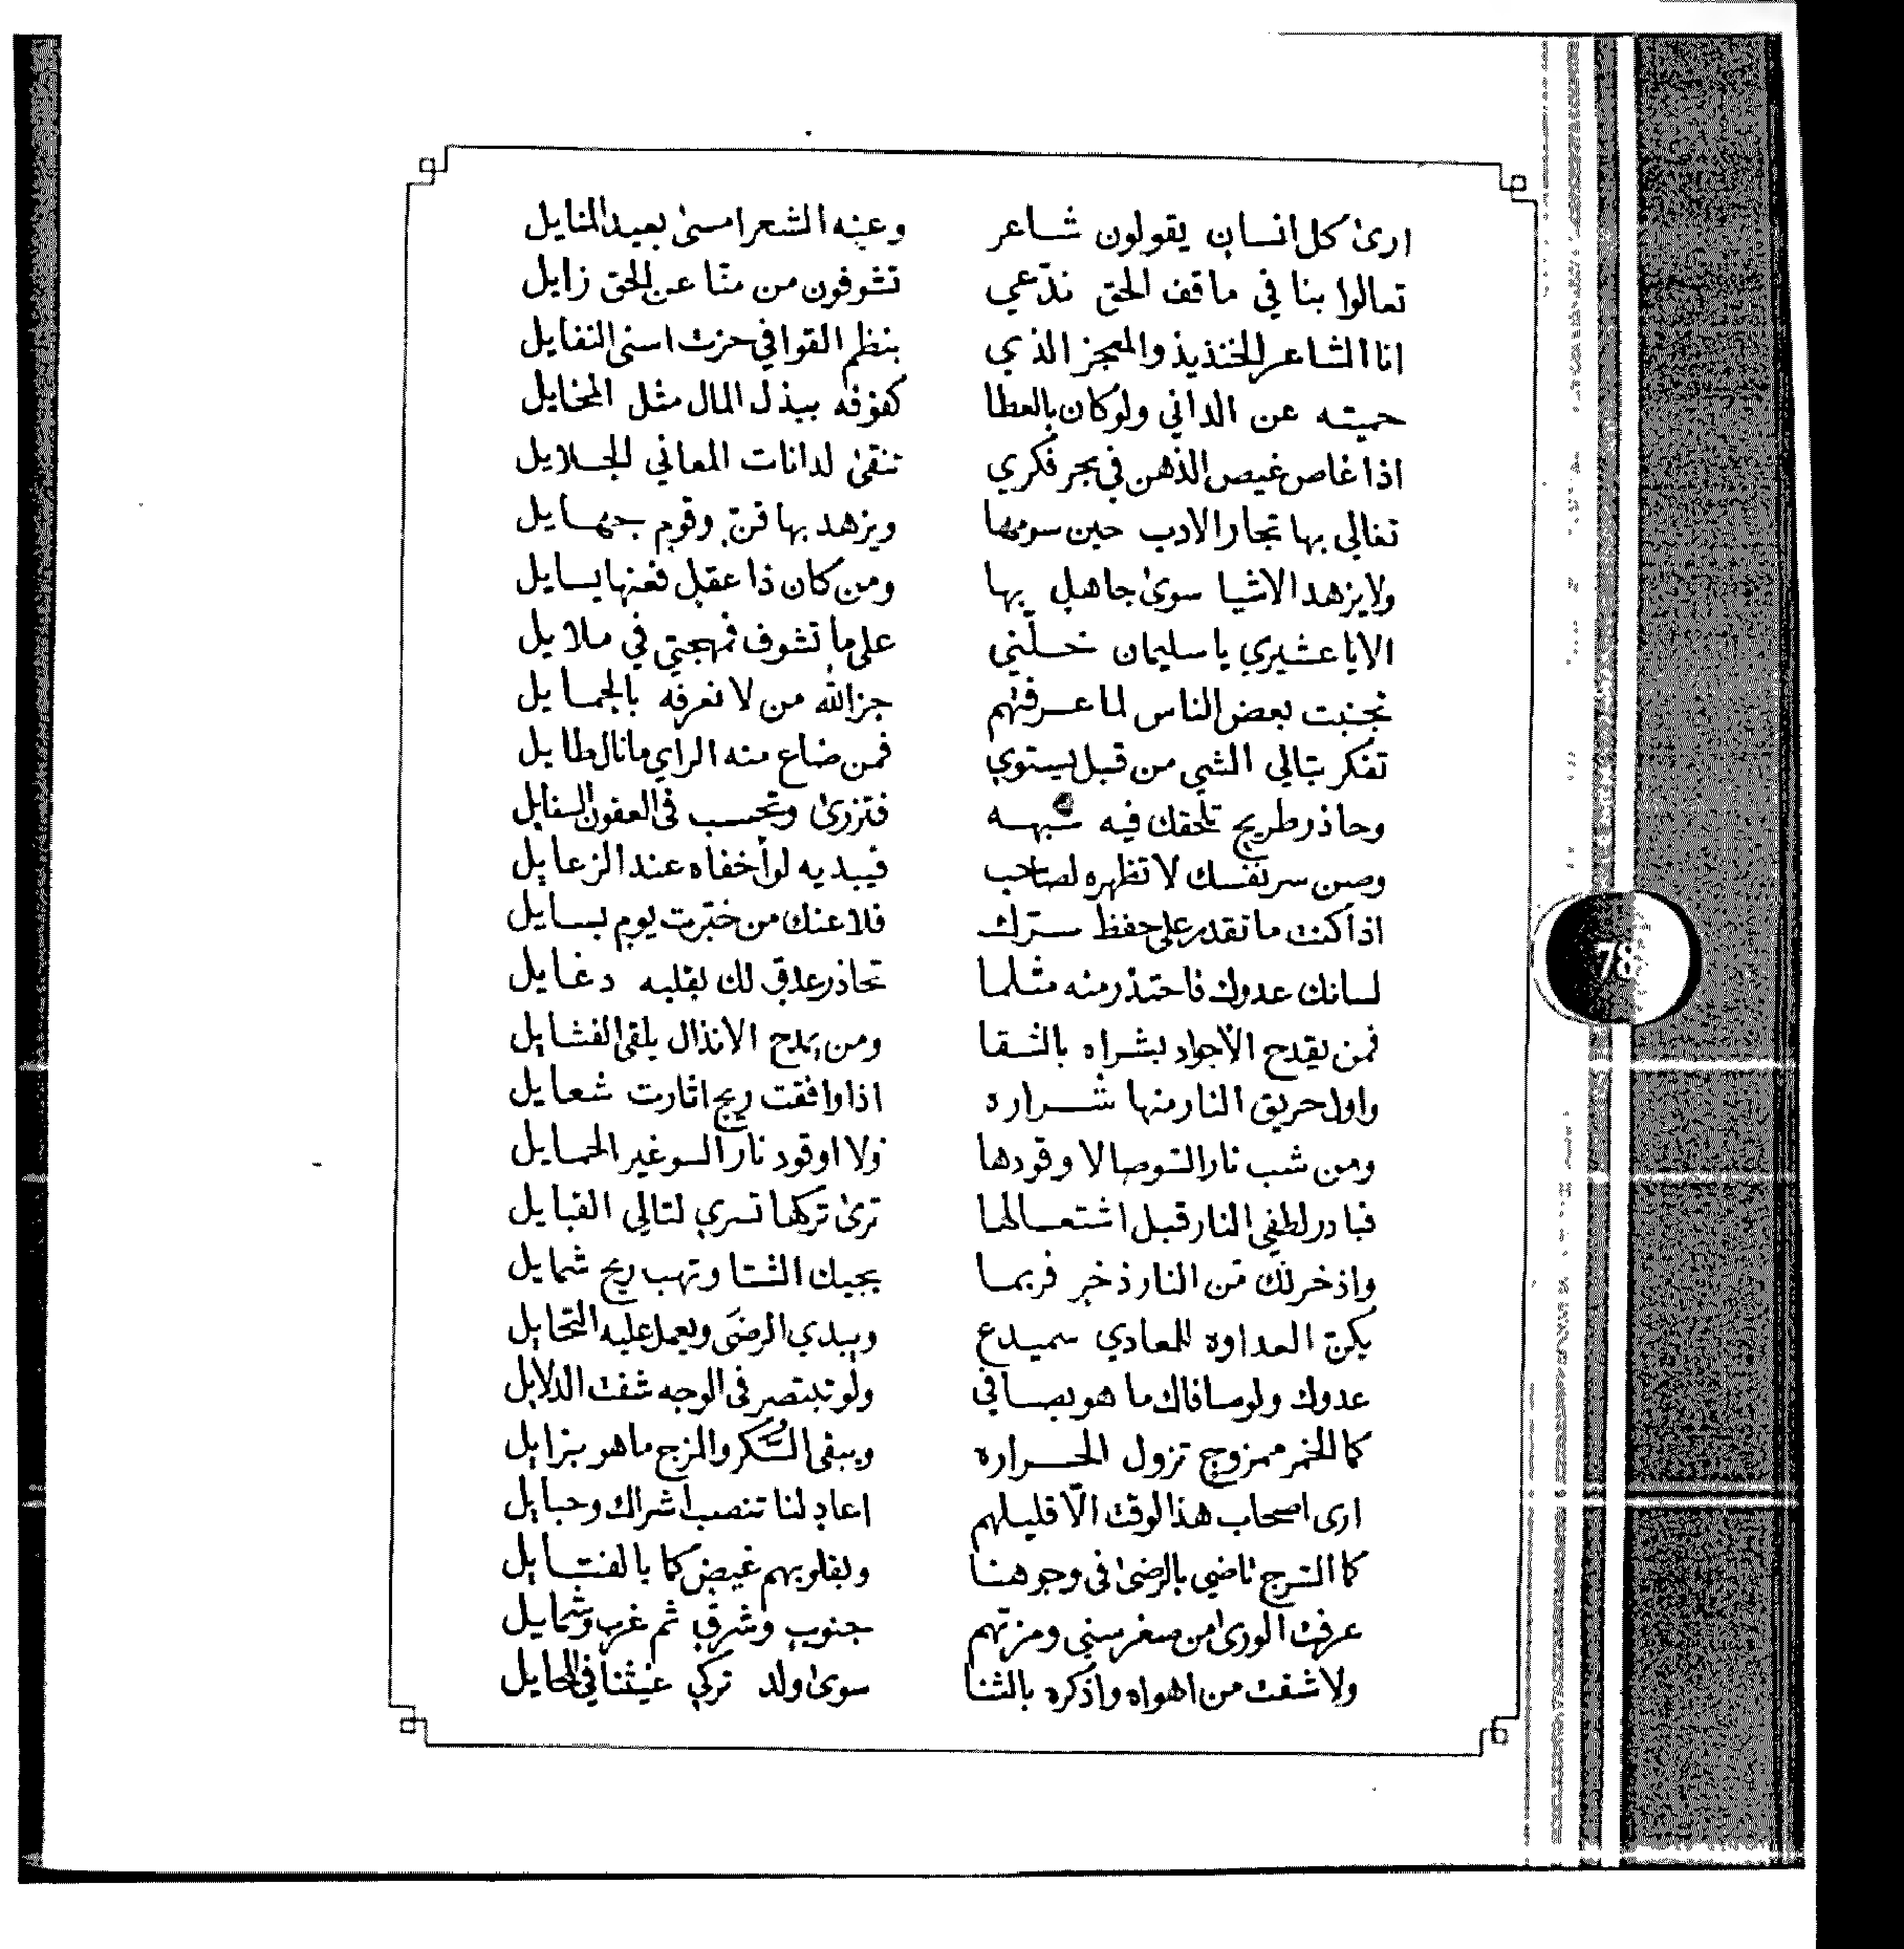 ارىٰ كل انسان يقولون شاعر وعنه الشعر امسىٰ بعيد المنايل
تعالوا بنا في ماقف الحق ندّعي تشوفون من منّا عن الحق زايل
انا الشاعر الخنذيذ والمعجز الذي بنظم القوافي حزت اسنى النفايل
حميته عن الداني ولو كان بالعطا كفوفه ببذل المال مثل المخايل
اذا غاص غيص الذهن في بحر فكري تنقىٰ لدانات المعاني الجلايل
تغالي بها تجار الادب حين سومها ويزهد بها قنٍّ وقومٍ جهايل
ولا يزهد الاشيا سوىٰ جاهلٍ بها ومن كان ذا عقلٍ فعنها يسايل
الا يا عشيري يا سليمان خلّني على ما تشوف فمهجتي في ملايل
تجنبت بعض الناس لما عرفتهم جزا الله من لا نعرفه بالجمايل
تفكر بتالي الشي من قبل يستوي فمن ضاع منه الراي ما نال طايل
وحاذر طريجٍ تلحقك فيه شبهه فتزرىٰ وتحسب في العقون السفايل
وصن سر نفسك لا تظهره لصاحب فيبديه لو أخفاه عند الزعايل
اذا كنت ما تقدر على حفظ سترك فلا عنك من خبّرت يومٍ بسايل
لسانك عدوك فاحتذر منه مثلما تحاذر علاقٍ لك بقلبه دغايل
فمن يقدح الأجواد بشراه بالشقا ومن يمدح الانذال يلقى الفشايل
واول حريق النار منها شراره اذا وافقت ريحٍ اثارت شعايل
ومن شب نار السّو صالا وقودها ولا اوقود نار السو غير الحمايل
فبادر لطفي النار قبل اشتعالها ترىٰ تركها تسري لتالي القبايل
واذخر لك من النار ذخرٍ فربما يجيك الشتا وتهب ريح شمايل
يكنّ العداوه للمعادي سميدع ويبدي الرضى ويعمل عليه التحايل
عدوك ولو صافاك ما هو بصافي ولو تبتصر في الوجه شفت الدلايل
كما الخمر ممزوجٍ تزول الحراره ويبقى السُّكر والمزج ما هو بزايل
ارى اصحاب هذا الوقت الّا قليلهم اعادٍ لنا تنصب أشراك وحبايل
كما السّرج تاضي بالرضىٰ في وجوهنا وبقلوبهم غيضٍ كما بالفتايل
عرفت الورىٰ من صغر سنّي ومزتهم جنوبٍ وشرقٍ ثم غربٍ وشمايل
ولا شفت من اهواه واذكره بالثنا سوىٰ ولد تركي غيثنا في المحايل
78